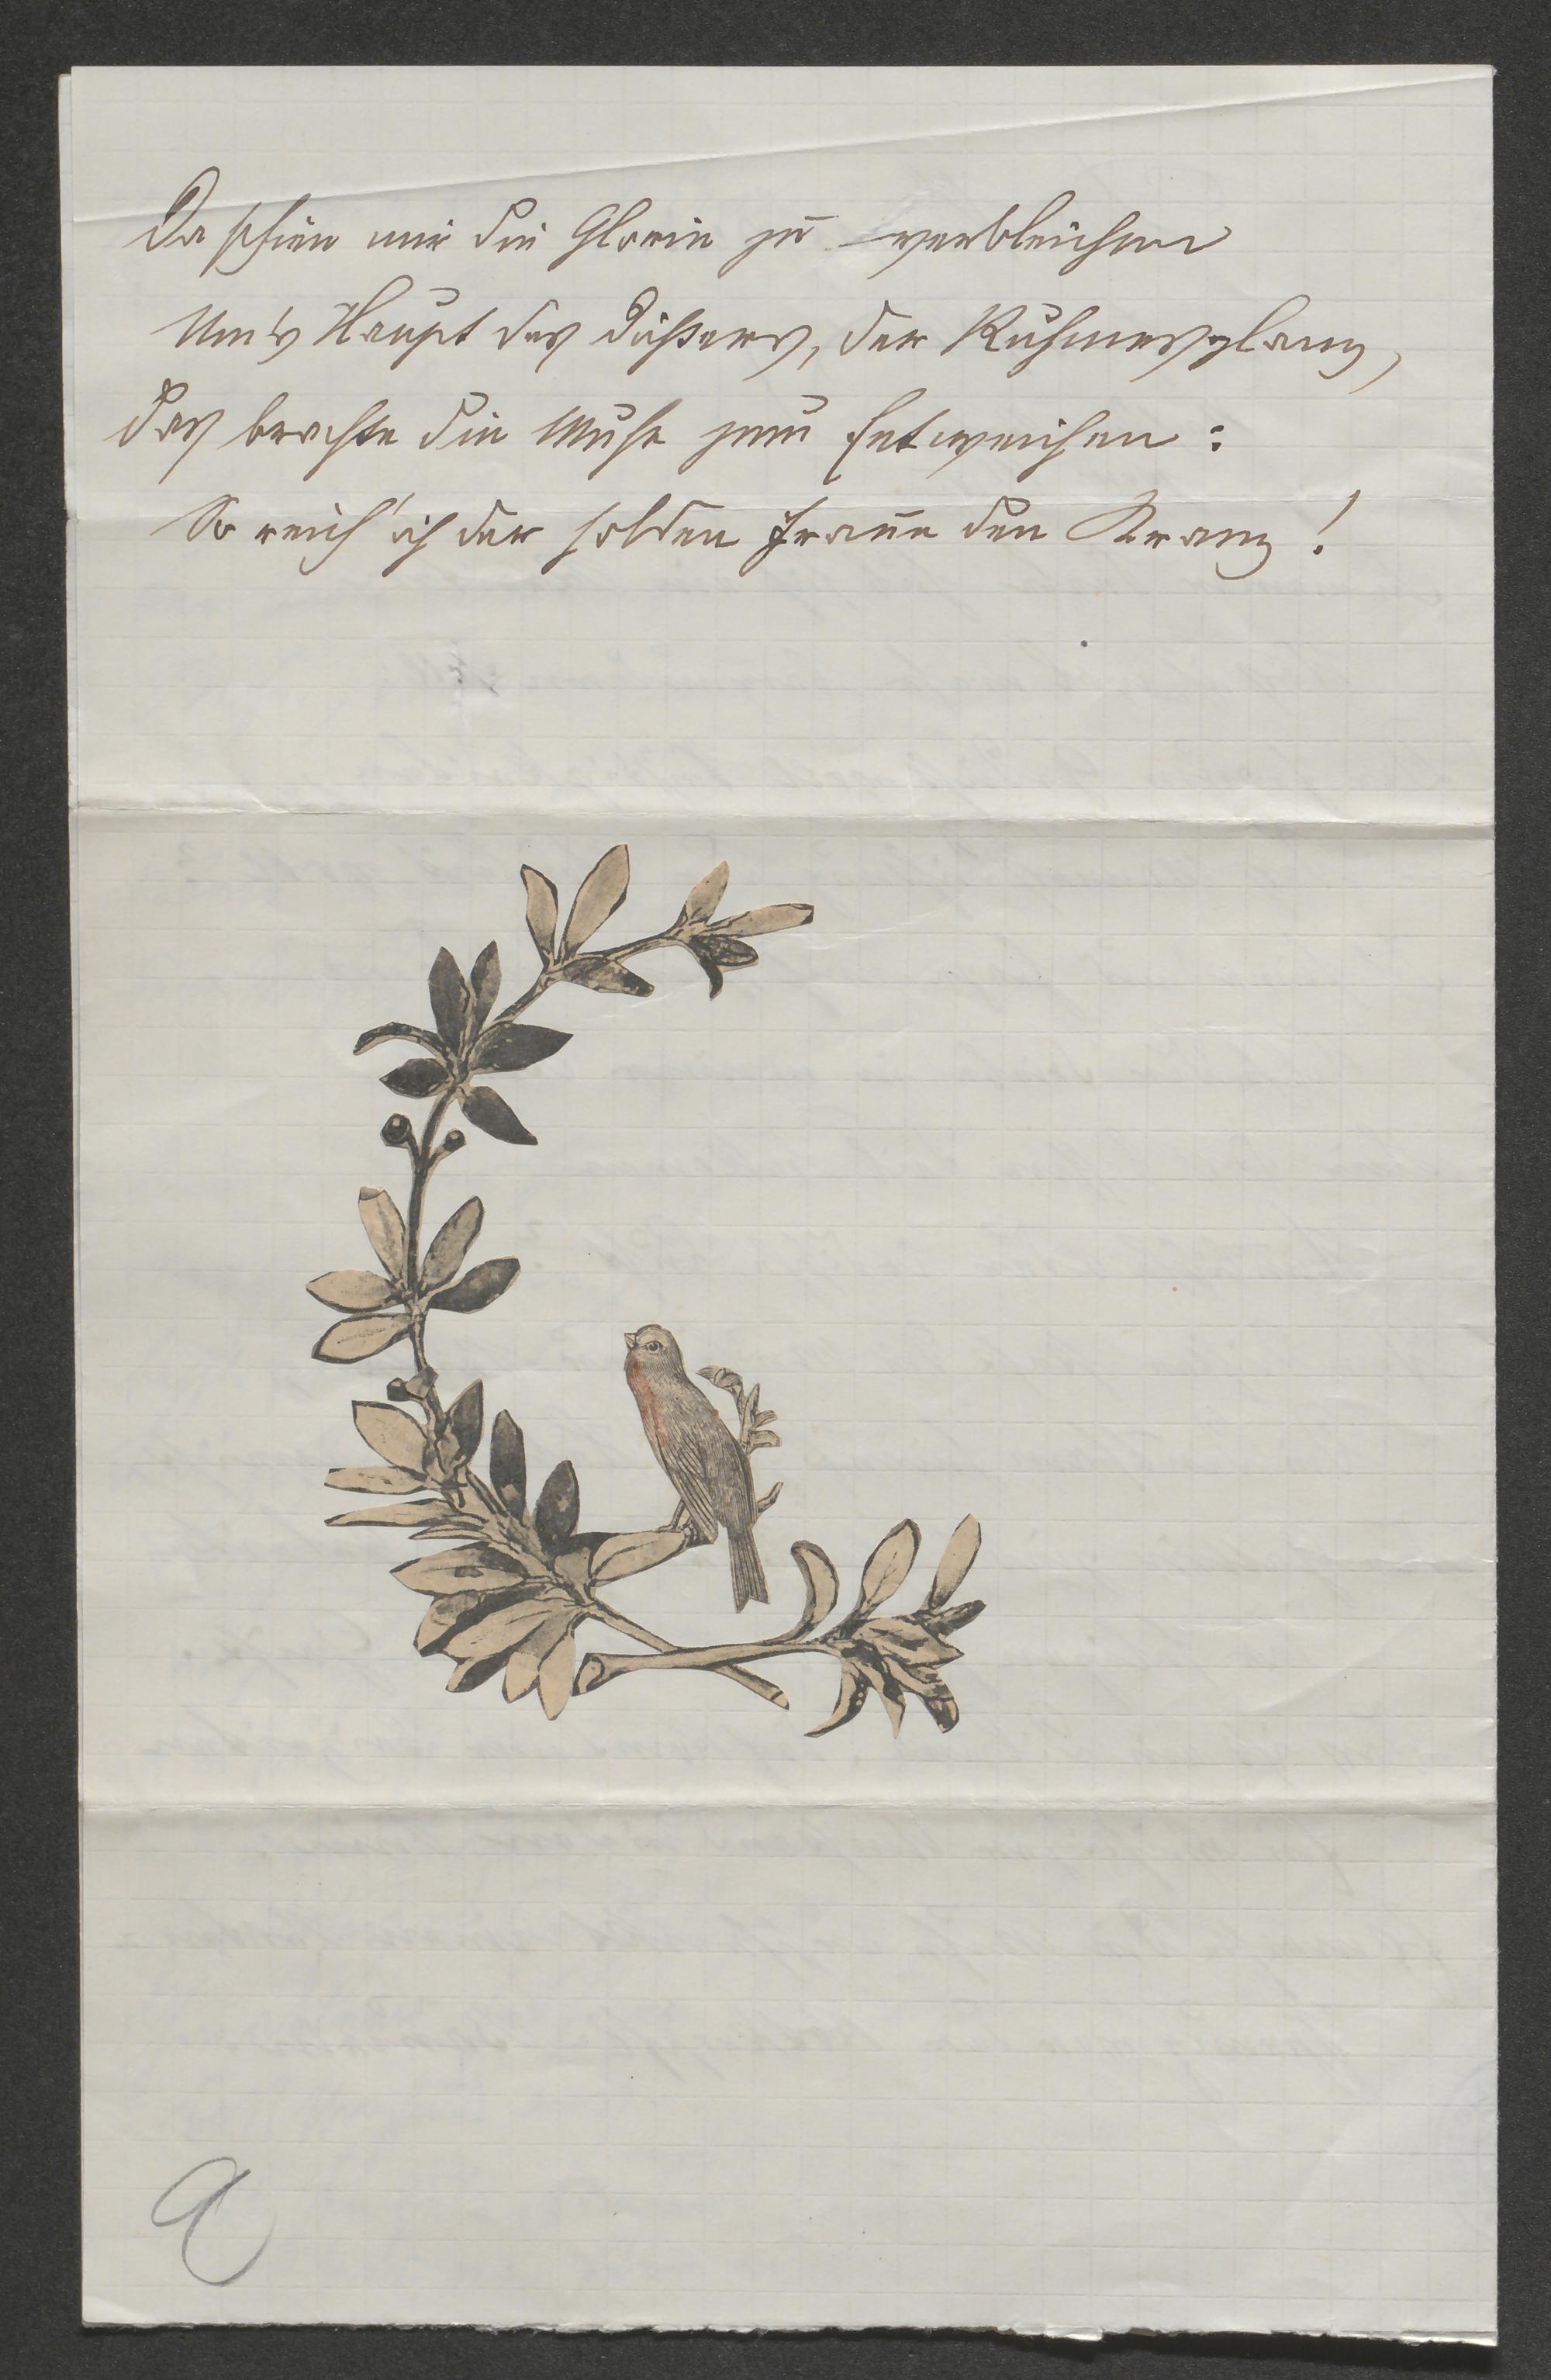 Da schien mir die Glorie zu verbleichen
Um's Haupt des Dichters, der Ruhmesglanz,
das brachte die Muse zum Entweichen:
So reich' ich der holden Fraue den Kranz!